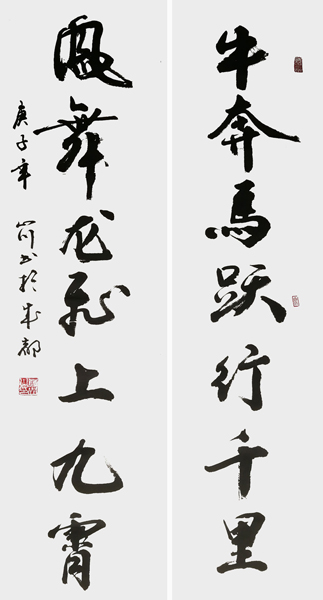 牛奔馬跃行千里
鳳舞龙飛上九霄
庚子年
书於成都